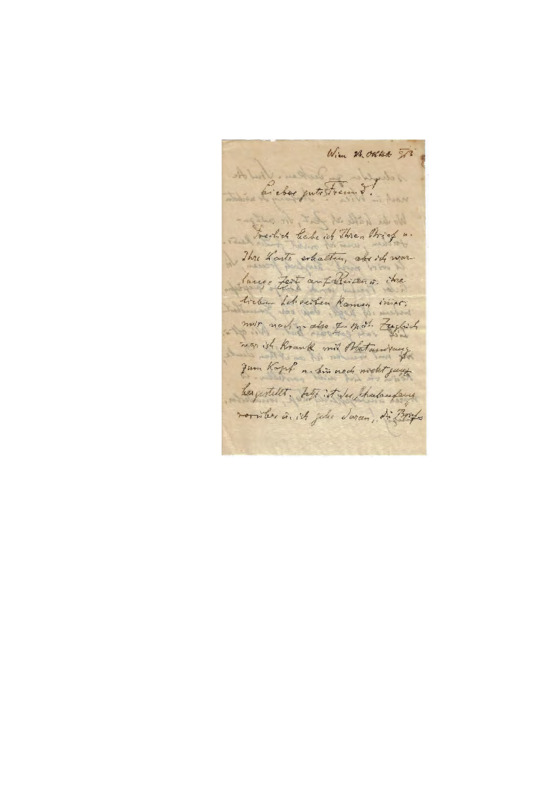 Wien 24. Oktob.
Lieber guter Freund!
Freilich habe ich Ihren Brief u.
Ihre Karte erhalten, aber ich war
lange Zeit auf Reisen u. ihre
lieben Schreiben kamen immer
mir nach u. also zu spät. Zugleich
war ich krank mit Blutandrang
zum Kopf u. bin noch nicht ganz
hergestellt. Jetzt ist der Schulanfang
vorüber u. ich gehe daran, die Briefe